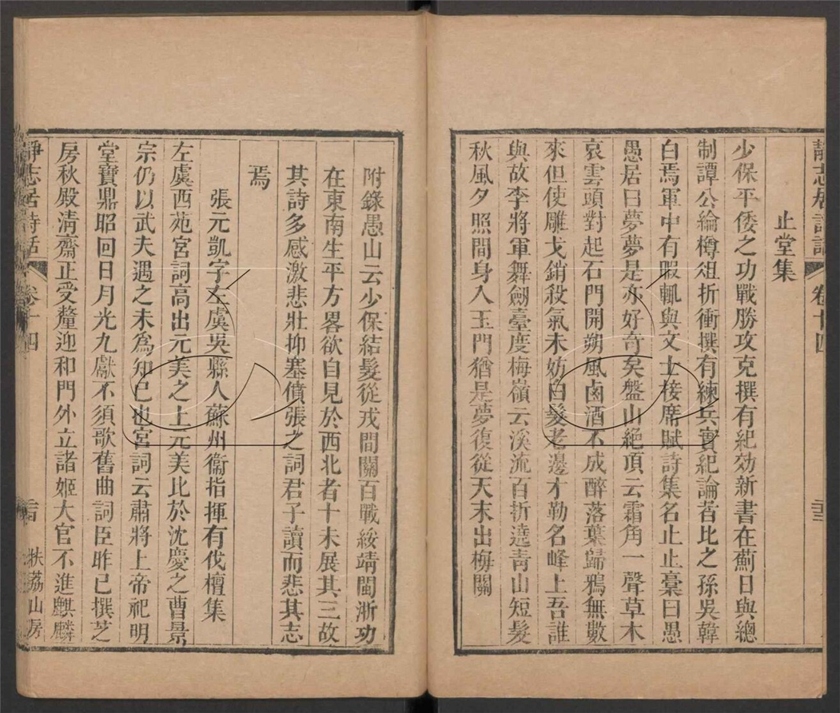 靜志居詩話 卷十四 二十三
止堂集
少保平倭之功戰勝攻克撰有紀効新書在薊日與總
制譚公綸樽俎折衝撰有練兵實紀論者比之孫吳韓
白焉軍中有暇輒與文士接席賦詩集名止止稾曰愚
愚居曰夢夢是亦好奇矣盤山絶頂云霜角一聲草木
哀雲頭對起石門開朔風鹵酒不成醉落葉歸鴉無數
來但使雕戈銷殺氣未妨白髮老邊才勒名峰上吾誰
與故李將軍舞劒臺度梅嶺云溪流百折遶青山短髮
秋風夕照間身入玉門猶是夢復從天末出梅關
附錄愚山云少保結髮從戎間關百戰綏靖閩浙功
在東南生平方畧欲自見於西北者十未展其三故
其詩多感激悲壯抑塞僨張之詞君子讀而悲其志
焉
張元凱字左虞吳縣人蘇州衞指揮有伐檀集
左虞西苑宮詞高出元美之上元美比於沈慶之曹景
宗仍以武夫遇之未為知己也宮詞云肅將上帝祀明
堂寶鼎昭回日月光九獻不須歌舊曲詞臣昨已撰芝
房秋殿清齋正受釐迎和門外立諸姬大官不進麒麟
靜志居詩話 卷十四 二十四 扶荔山房